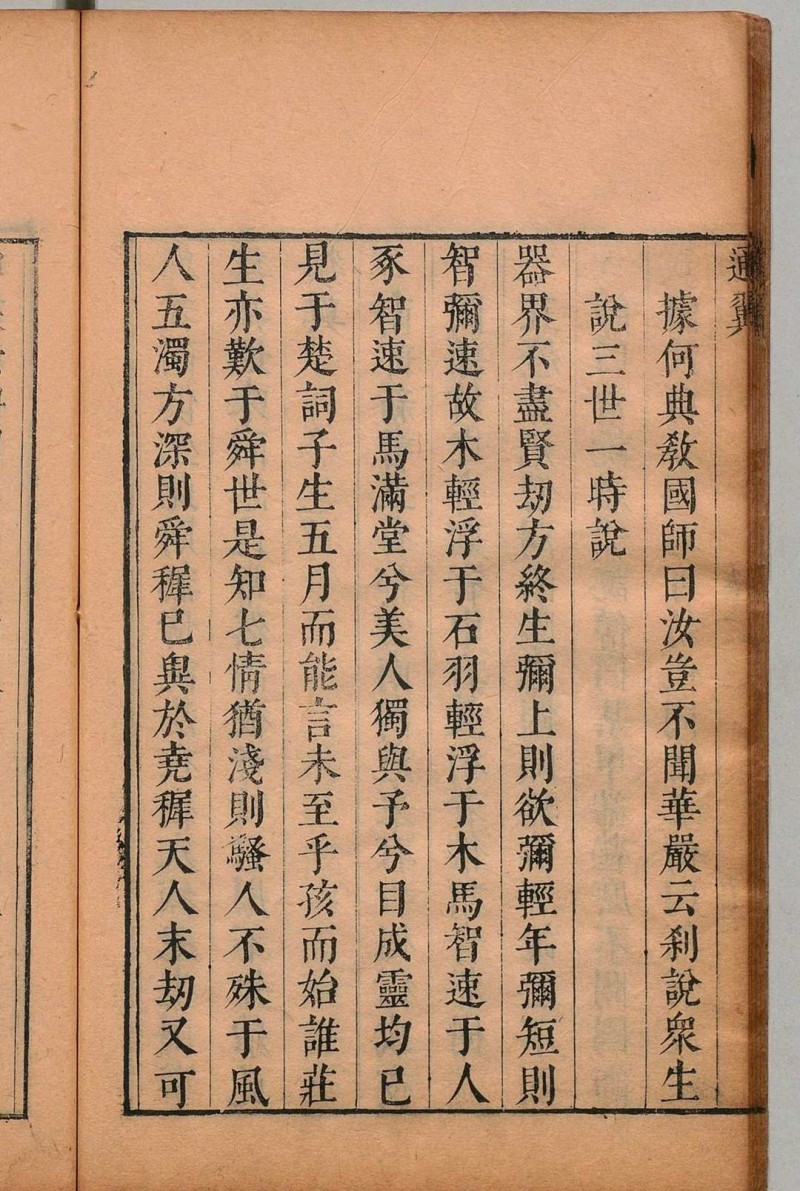 通翼
據何典教國師曰汝豈不聞華嚴云刹說衆生
說三世一時說
器界不盡賢劫方終生彌上則欲彌輕年彌短則
智彌速故木輕浮于石羽輕浮于木馬智速于人
豕智速于馬滿堂兮美人獨與予兮目成靈均已
見于楚詞子生五月而能言未至乎孩而始誰莊
生亦歎于舜世是知七情猶淺則騷人不殊于風
人五濁方深則舜穉已異於堯穉天人末刼又可